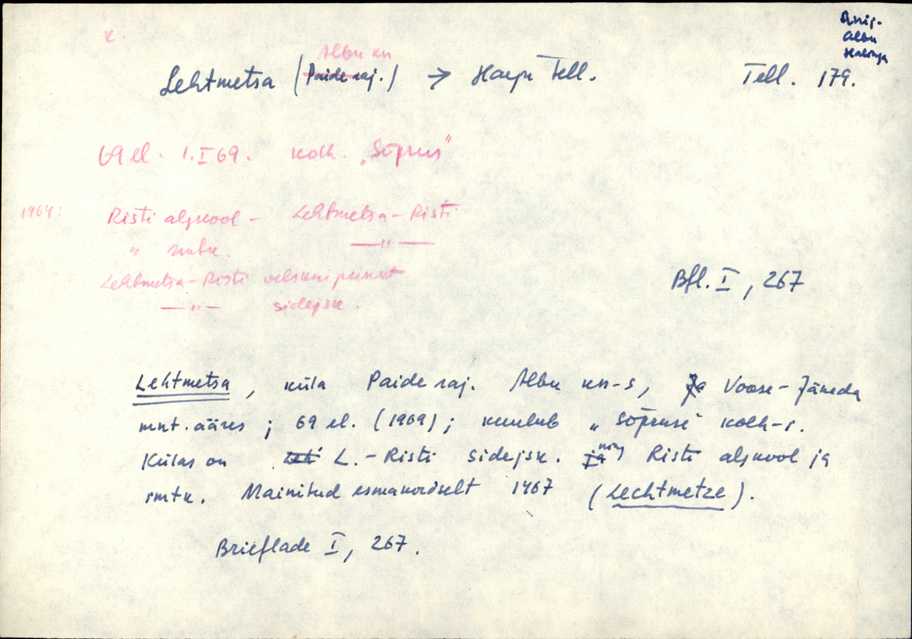 x.
Albu kn
Lehtmetsa (Paide raj.) → Harju Tell. Tell. 179.
Albu
69 el. 1. I 69. kolh. „Sõprus"
1964: Risti algkool – Lehtmetsa-Risti
" rmtk. —"—
Lehtmetsa-Risti velskripunkt
—"— sidejsk.
Bfl. I, 267
Lehtmetsa, küla Paide raj. Albu kn-s, Voose-Jäneda
mnt. ääres; 69 el. (1969); kuulub „Sõpruse" kolh-i.
Külas on L.-Risti sidejsk. ning Risti algkool ja
rmtk. Mainitud esmakordselt 1467 (Lechtmetze).
Brieflade I, 267.